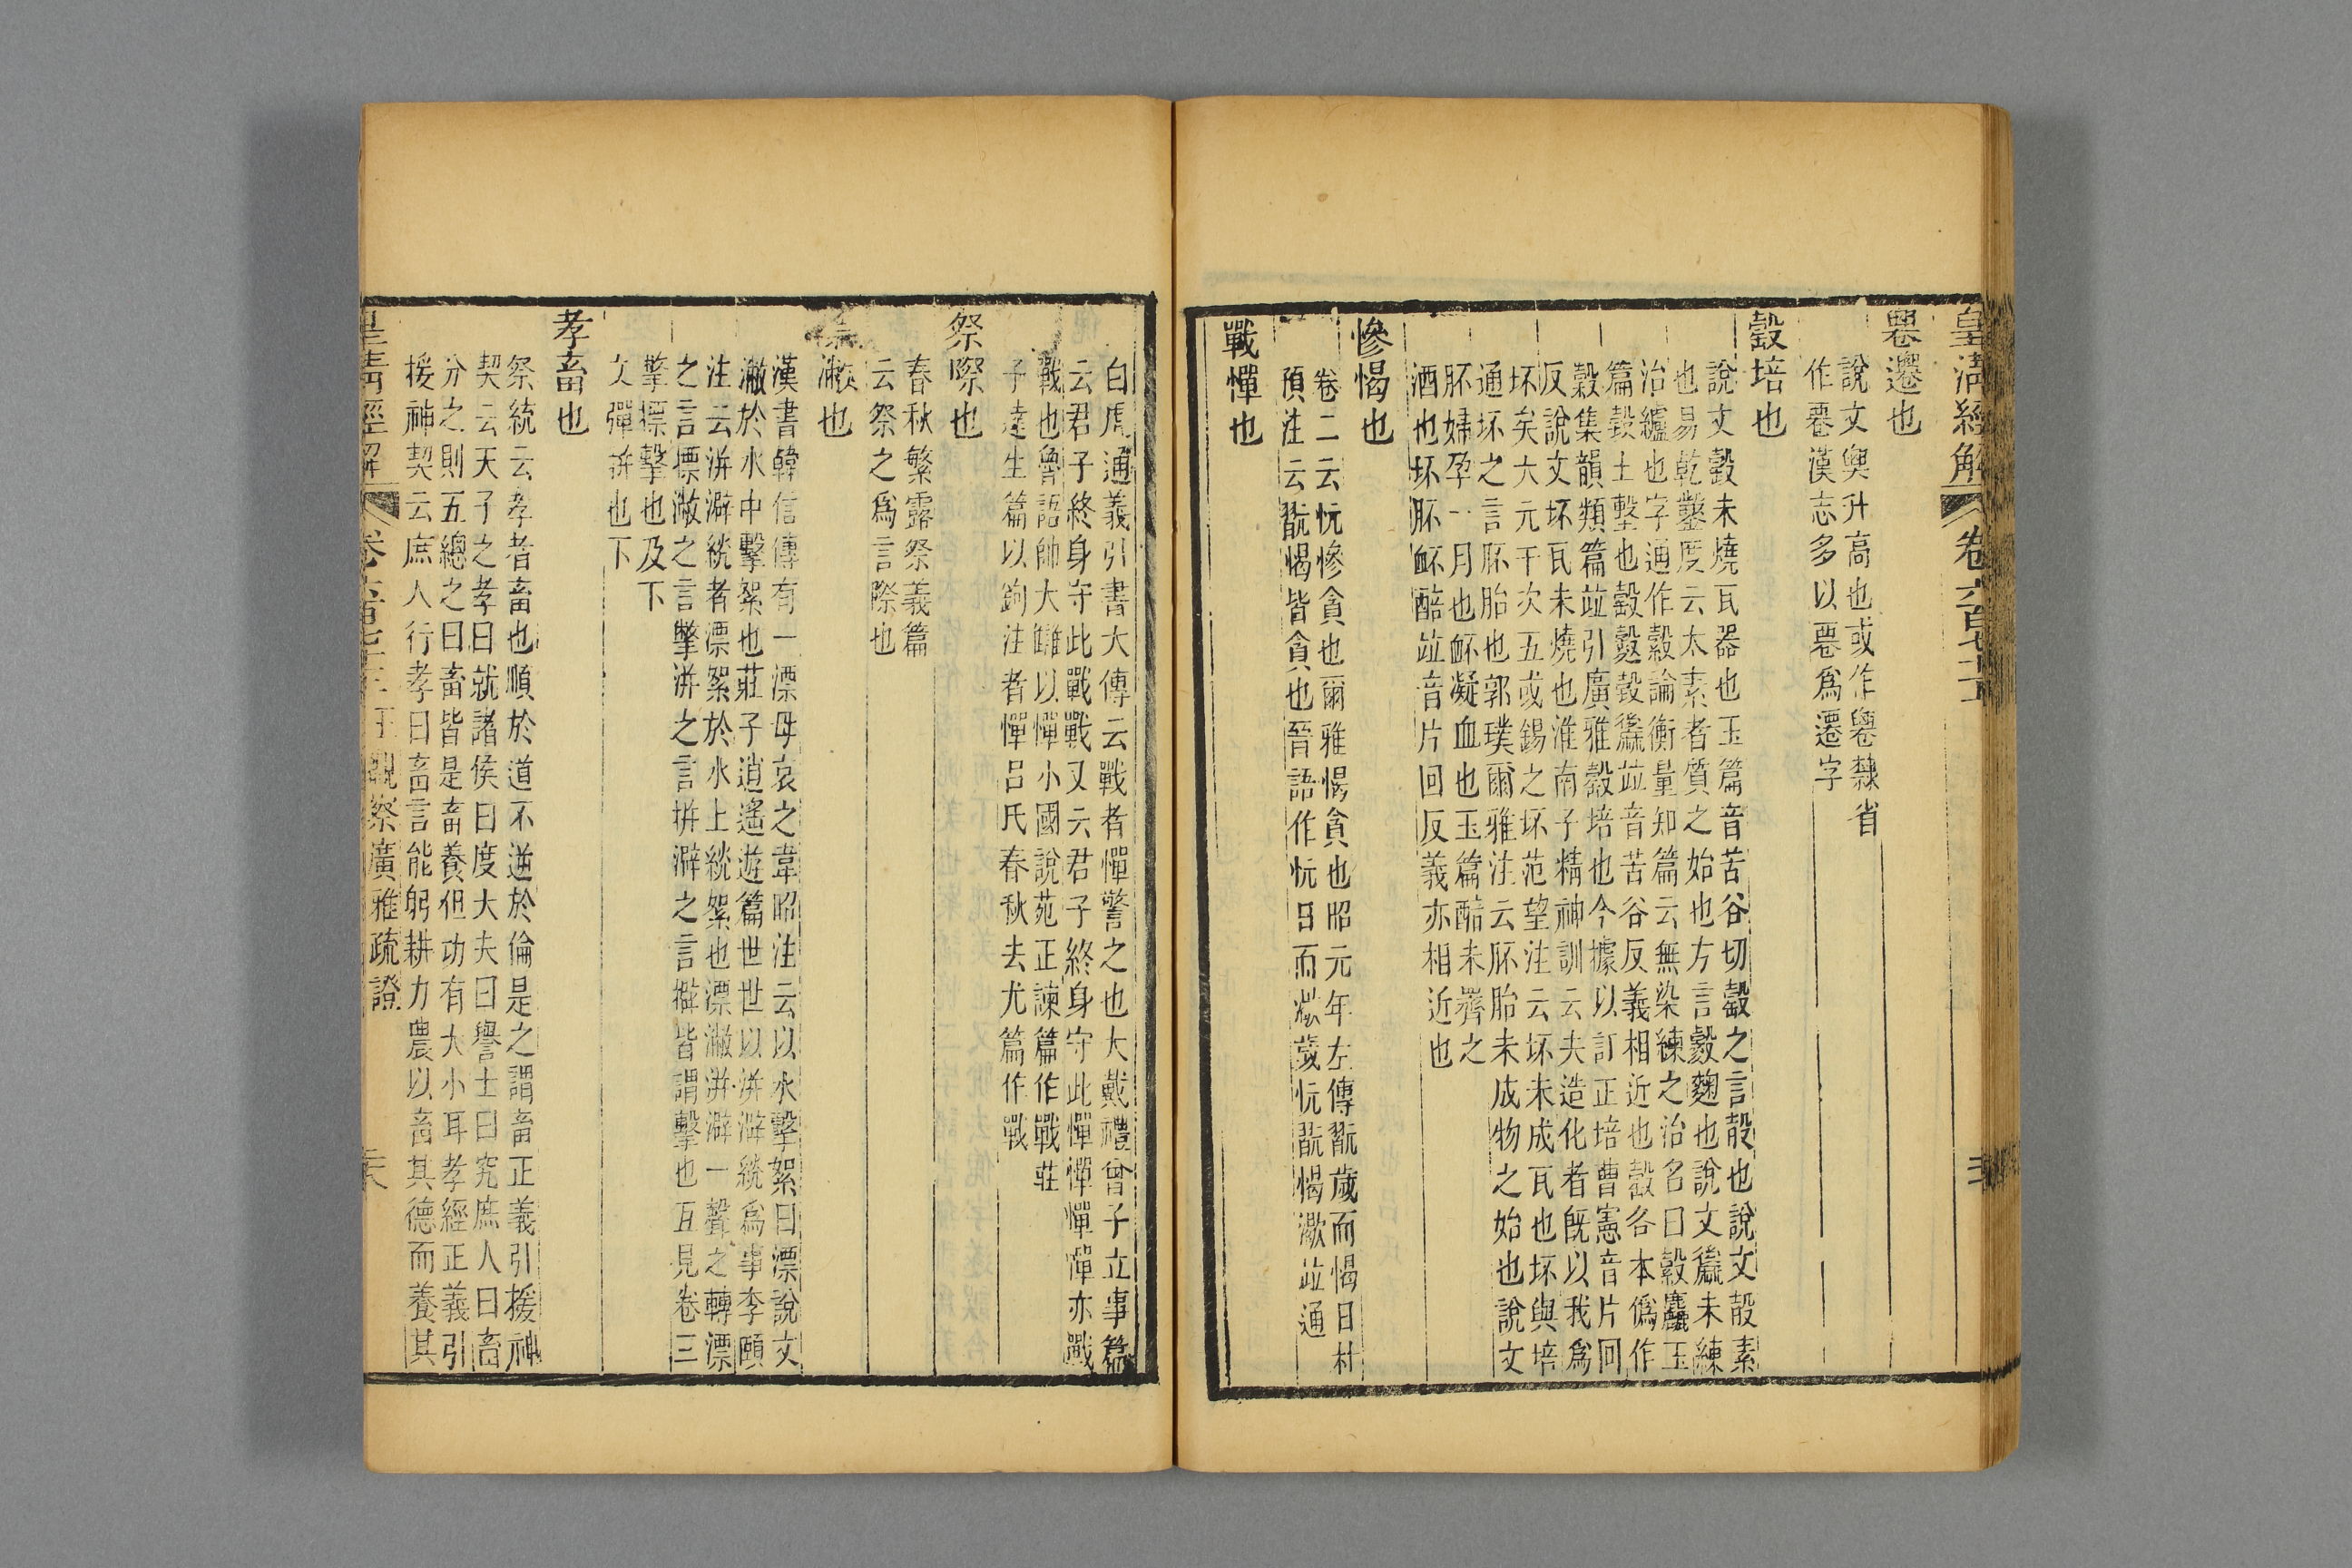 皇淸經解 卷六百七十二
䙴遷也
說文䙴升高也或作䙴隸省
作䙴漢志多以䙴爲遷字
㲉培也
說文㲉未燒瓦器也玉篇音苦谷切㲉之言㱿也說文㱿素
也易乾鑿度云太素者質之始也方言䴷麴也說文䊪未練
治纑也字通作縠論衡量知篇云無染練之治名曰縠麤玉
篇㲉土墼也㲉䴷縠䊪竝音苦谷反義相近也㲉各本僞作
縠集韻類篇竝引廣雅縠培也今據以訂正培曹憲音片回
反說文坏瓦未燒也淮南子精神訓云夫造化者旣以我爲
坏矣大元干次五或錫之坏范望注云坏未成瓦也坏與培
通坏之言胚胎也郭璞爾雅注云胚胎未成物之始也說文
胚婦孕一月也衃凝血也玉篇醅未霽之
酒也坏胚衃醅竝音片回反義亦相近也
慘愒也
卷二云忨慘貪也爾雅愒貪也昭元年左傳翫歲而愒日杜
預注云翫愒皆貪也晉語作忨日而㵣歲忨翫愒㵣竝通
戰憚也
白虎通義引書大傳云戰者憚警之也大戴禮曾子立事篇
云君子終身守此戰戰又云君子終身守此憚憚憚亦戰
戰也魯語帥大讎以憚小國說苑正諫篇作戰莊
子達生篇以鉤注者憚呂氏春秋去尤篇作戰
祭際也
春秋繁露祭義篇
云祭之爲言際也
漂潎也
漢書韓信傳有一漂母哀之韋昭注云以水擊絮曰漂說文
潎於水中擊絮也莊子逍遙遊篇世世以洴澼絖爲事李頤
注云洴澼絖者漂絮於水上絖絮也漂潎洴澼一聲之轉漂
之言摽潎之言擊洴之言拼澼之言擗皆謂擊也互見卷三
擎摽擊也及下
文彈拼也下
孝畜也
祭統云孝者畜也順於道不逆於倫是之謂畜正義引援神
契云天子之孝曰就諸侯曰度大夫曰譽士曰究庶人曰畜
分之則五總之曰畜皆是畜養但功有大小耳孝經正義引
援神契云庶人行孝曰畜言能躬耕力農以畜其德而養其
皇淸經解 卷六百七十二 王觀察廣雅疏證